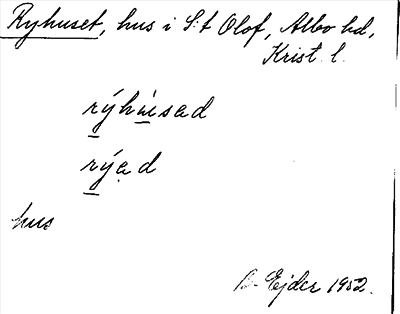 Ryhuset, hus i S:t Olof, Albo hd,
Krist. l.
rýhùsad
rýad
hus
B. Ejder 1952.